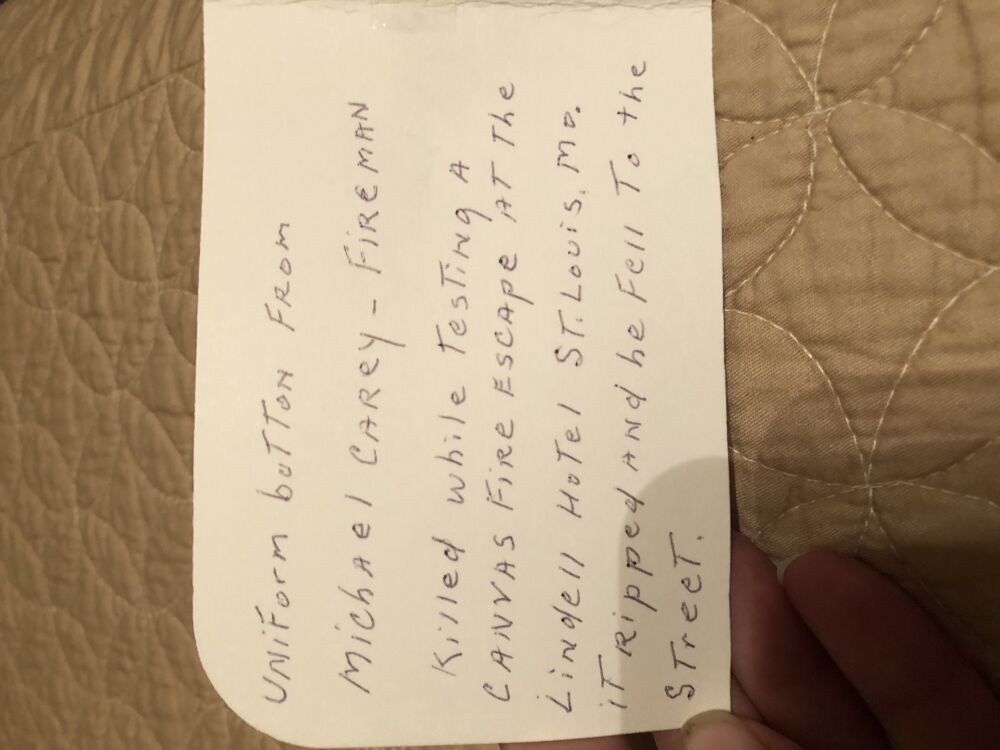 Uniform button from
Michael Carey - Fireman
Killed while Testing A
Canvas Fire Escape At The
Lindell Hotel St. Louis, Mo.
iT Ripped And he Fell To the
Street.